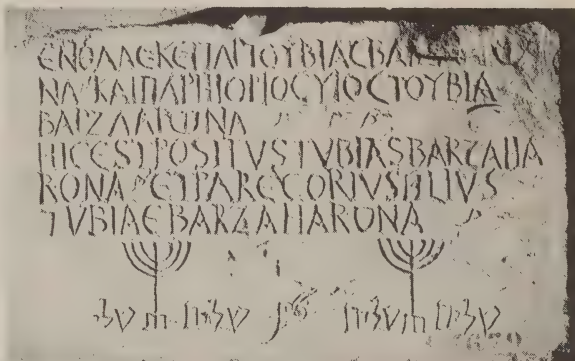 ΕΝΘΑΔΕ ΚΕΙΤΑΙ ΤΟΥΒΙΑC
ΝΑ ΚΑΙ ΠΑΡΗΓΟΡΙΟC ΥΙΟC ΤΟΥΒΙΑ
ΒΑΡΖΑΑΡΩΝΑ
HIC EST POSITVS TVBIAS BARZAHA
RONA ET PAREGORIVS FILIVS
TVBIAE BARZAHARONA
שלום שלום